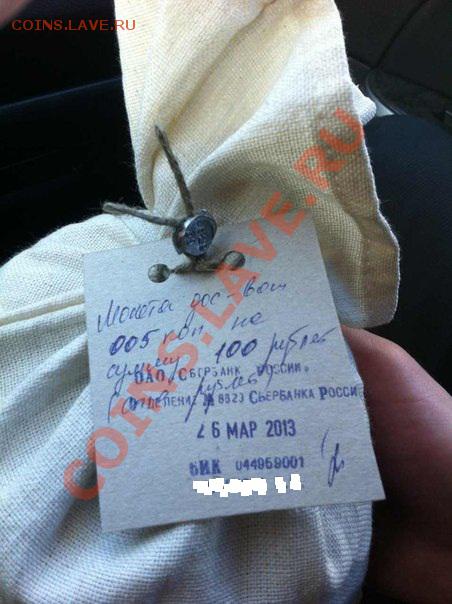 COINS.LAVE.RU
COINS.LAVE.RU
Монета дос-вом
005 коп. на
сумму 100 рублей
ОАО "Сбербанк России"
(сто рублей)
Отделение № 8629 Сбербанка Росси
26 МАР 2013
БИК 044959001